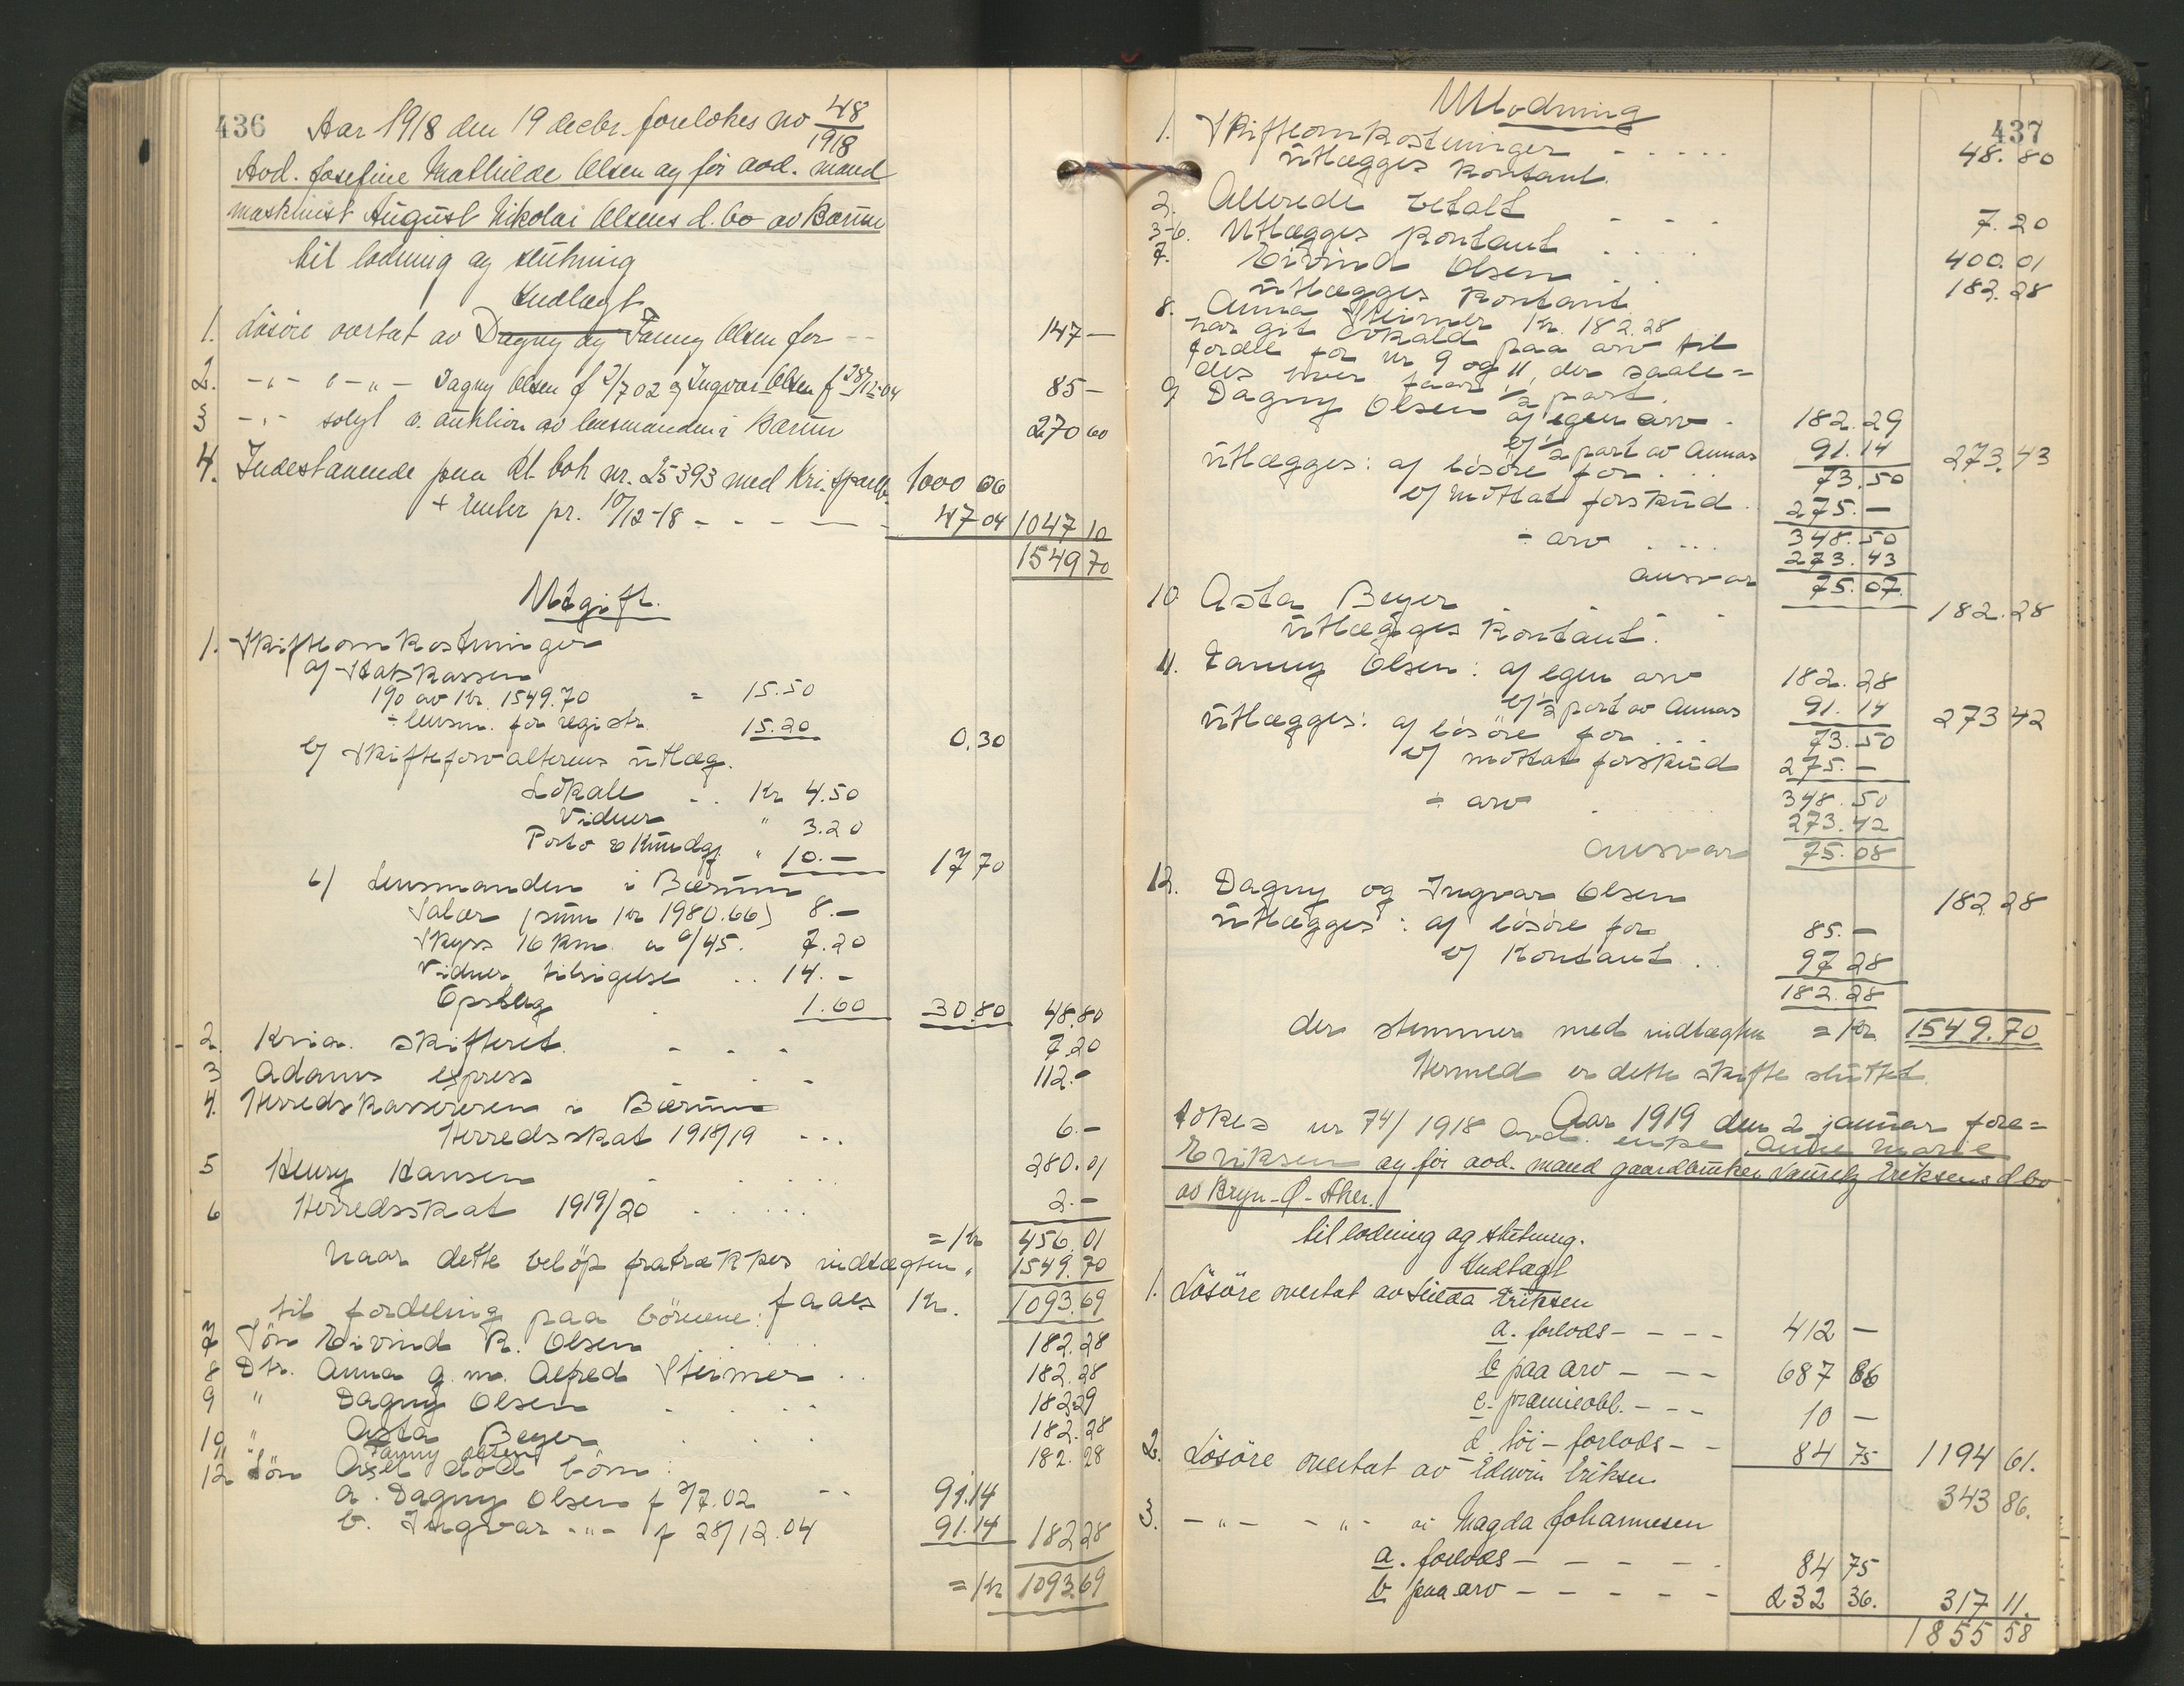 436
Aar 1918 den 19 decbr. foretokes no 48/1918
Avd. Josefine Mathilde Olsen og før avd. mand
maskinist August Nikolai Olsens d.bo av Bærum
til lodning og slutning
Indtægt
1. Løsøre overtat av Dagny og Fanny Olsen for -- 147 —
2. -"- -"- Dagny Olsen f 3/7 02 og Ingvar Olsen f 28/12-04 85 —
3 -"- solgt v. auktion av lensmanden i Bærum 270 60
4. Indestaaende paa kt. bok nr. 25393 med Kri. spareb. 1000 06
+ renter pr. 10/12-18 - - - - 47 04 1047 10
1549 70
Utgift.
1. Skifteomkostninger
a/ Statskassen
1% av Kr. 1549.70 = 15.50
÷ lensm. for registr. 15.20 0.30
b/ Skifteforvalterens utlæg.
Lokale .. Kr 4.50
Vidner " 3.20
Porto & Kundgj. " 10.— 17 70
c/ Lensmanden i Bærum
Salær (sum kr 1980.66) 8.—
Skyss 16 km. a 0/45. 7.20
Vidners tilsigelse .. 14.-
Opslag 1.60 30.80 48.80
2. Kria. skifteret. - - - 7.20
3 Adams express . . - 112.-
4. Herredskassereren i Bærum
Herredsskat 1918/19 ... 6.-
5 Henry Hansen . . . . 280.01
6 Herredsskat 1919/20 . . . . . 2.-
= Kr 456.01
Naar dette beløp fratrækkes indtægten, 1549.70
faaes Kr. 1093.69
til fordeling paa børnene:
7 Søn Eivind R. Olsen . . . 182.28
8 Dtr. Anna g.m. Alfred Steimer .. 182.28
9 " Dagny Olsen . . . . 182.29
10 " Asta Beyer . . . 182.28
11 " Fanny Olsen 182.28
12 Søn Axel død børn:
a. Dagny Olsen f 3/7.02 -- 91.14
b. Ingvar -"- f 28/12.04 91.14 182.28
= Kr 1093.69
437
Utlodning
1. Skifteomkostninger - - - - - 48.80
utlægges kontant.
2. Allerede betalt - - - 7.20
3-6. Utlægges kontant . . . . 400.01
7. Eivind Olsen . . 182.28
utlægges kontant
8. Anna Steimer Kr. 182.28
har git avkald paa arv til
fordel for nr 9 og 11, der saale=
des hver faar 1/2 part.
9 Dagny Olsen a/ egen arv . 182.29
b/ 1/2 part av Annas 91.14 273.43
utlægges: a/ løsøre for . . . 73.50
b/ mottat forskud . 275.—
348.50
÷ arv . ... 273.43
ansvar 75.07.
10 Asta Beyer . . . . 182.28
utlægges kontant.
11. Fanny Olsen: a/ egen arv 182.28
b/ 1/2 part av Annas 91.14 273 42
utlægges: a/ løsøre for ... 73.50
b/ mottat forskud 275.—
348.50
÷ arv . 273.42
ansvar 75.08
12. Dagny og Ingvar Olsen 182 28
utlægges: a/ løsøre for 85.—
b/ Kontant .. 97 28
182.28
der stemmer med indtægten = Kr 1549.70
Hermed er dette skifte sluttet.
Aar 1919 den 2 januar fore=
tokes nr 74/1918 avd. enke Anne Marie
Eriksen og før avd. mand gaardbruker Lauritz Eriksens d bo
av Bryn - Ø - Aker.
til lodning og slutning.
Indtægt
1. Løsøre overtat av Hilda Eriksen
a. forlods - - - - 412 —
b paa arv - - - 687 86
c. præmieobl. - - - 10 —
d. tøi - forlods - - 84 75 1194 61.
2. Løsøre overtat av Edwin Eriksen 343 86.
3. -"- -"- av Magda Johannesen
a. forlods - - - - - 84 75
b paa arv - - - - - 232 36. 317 11.
1855 58